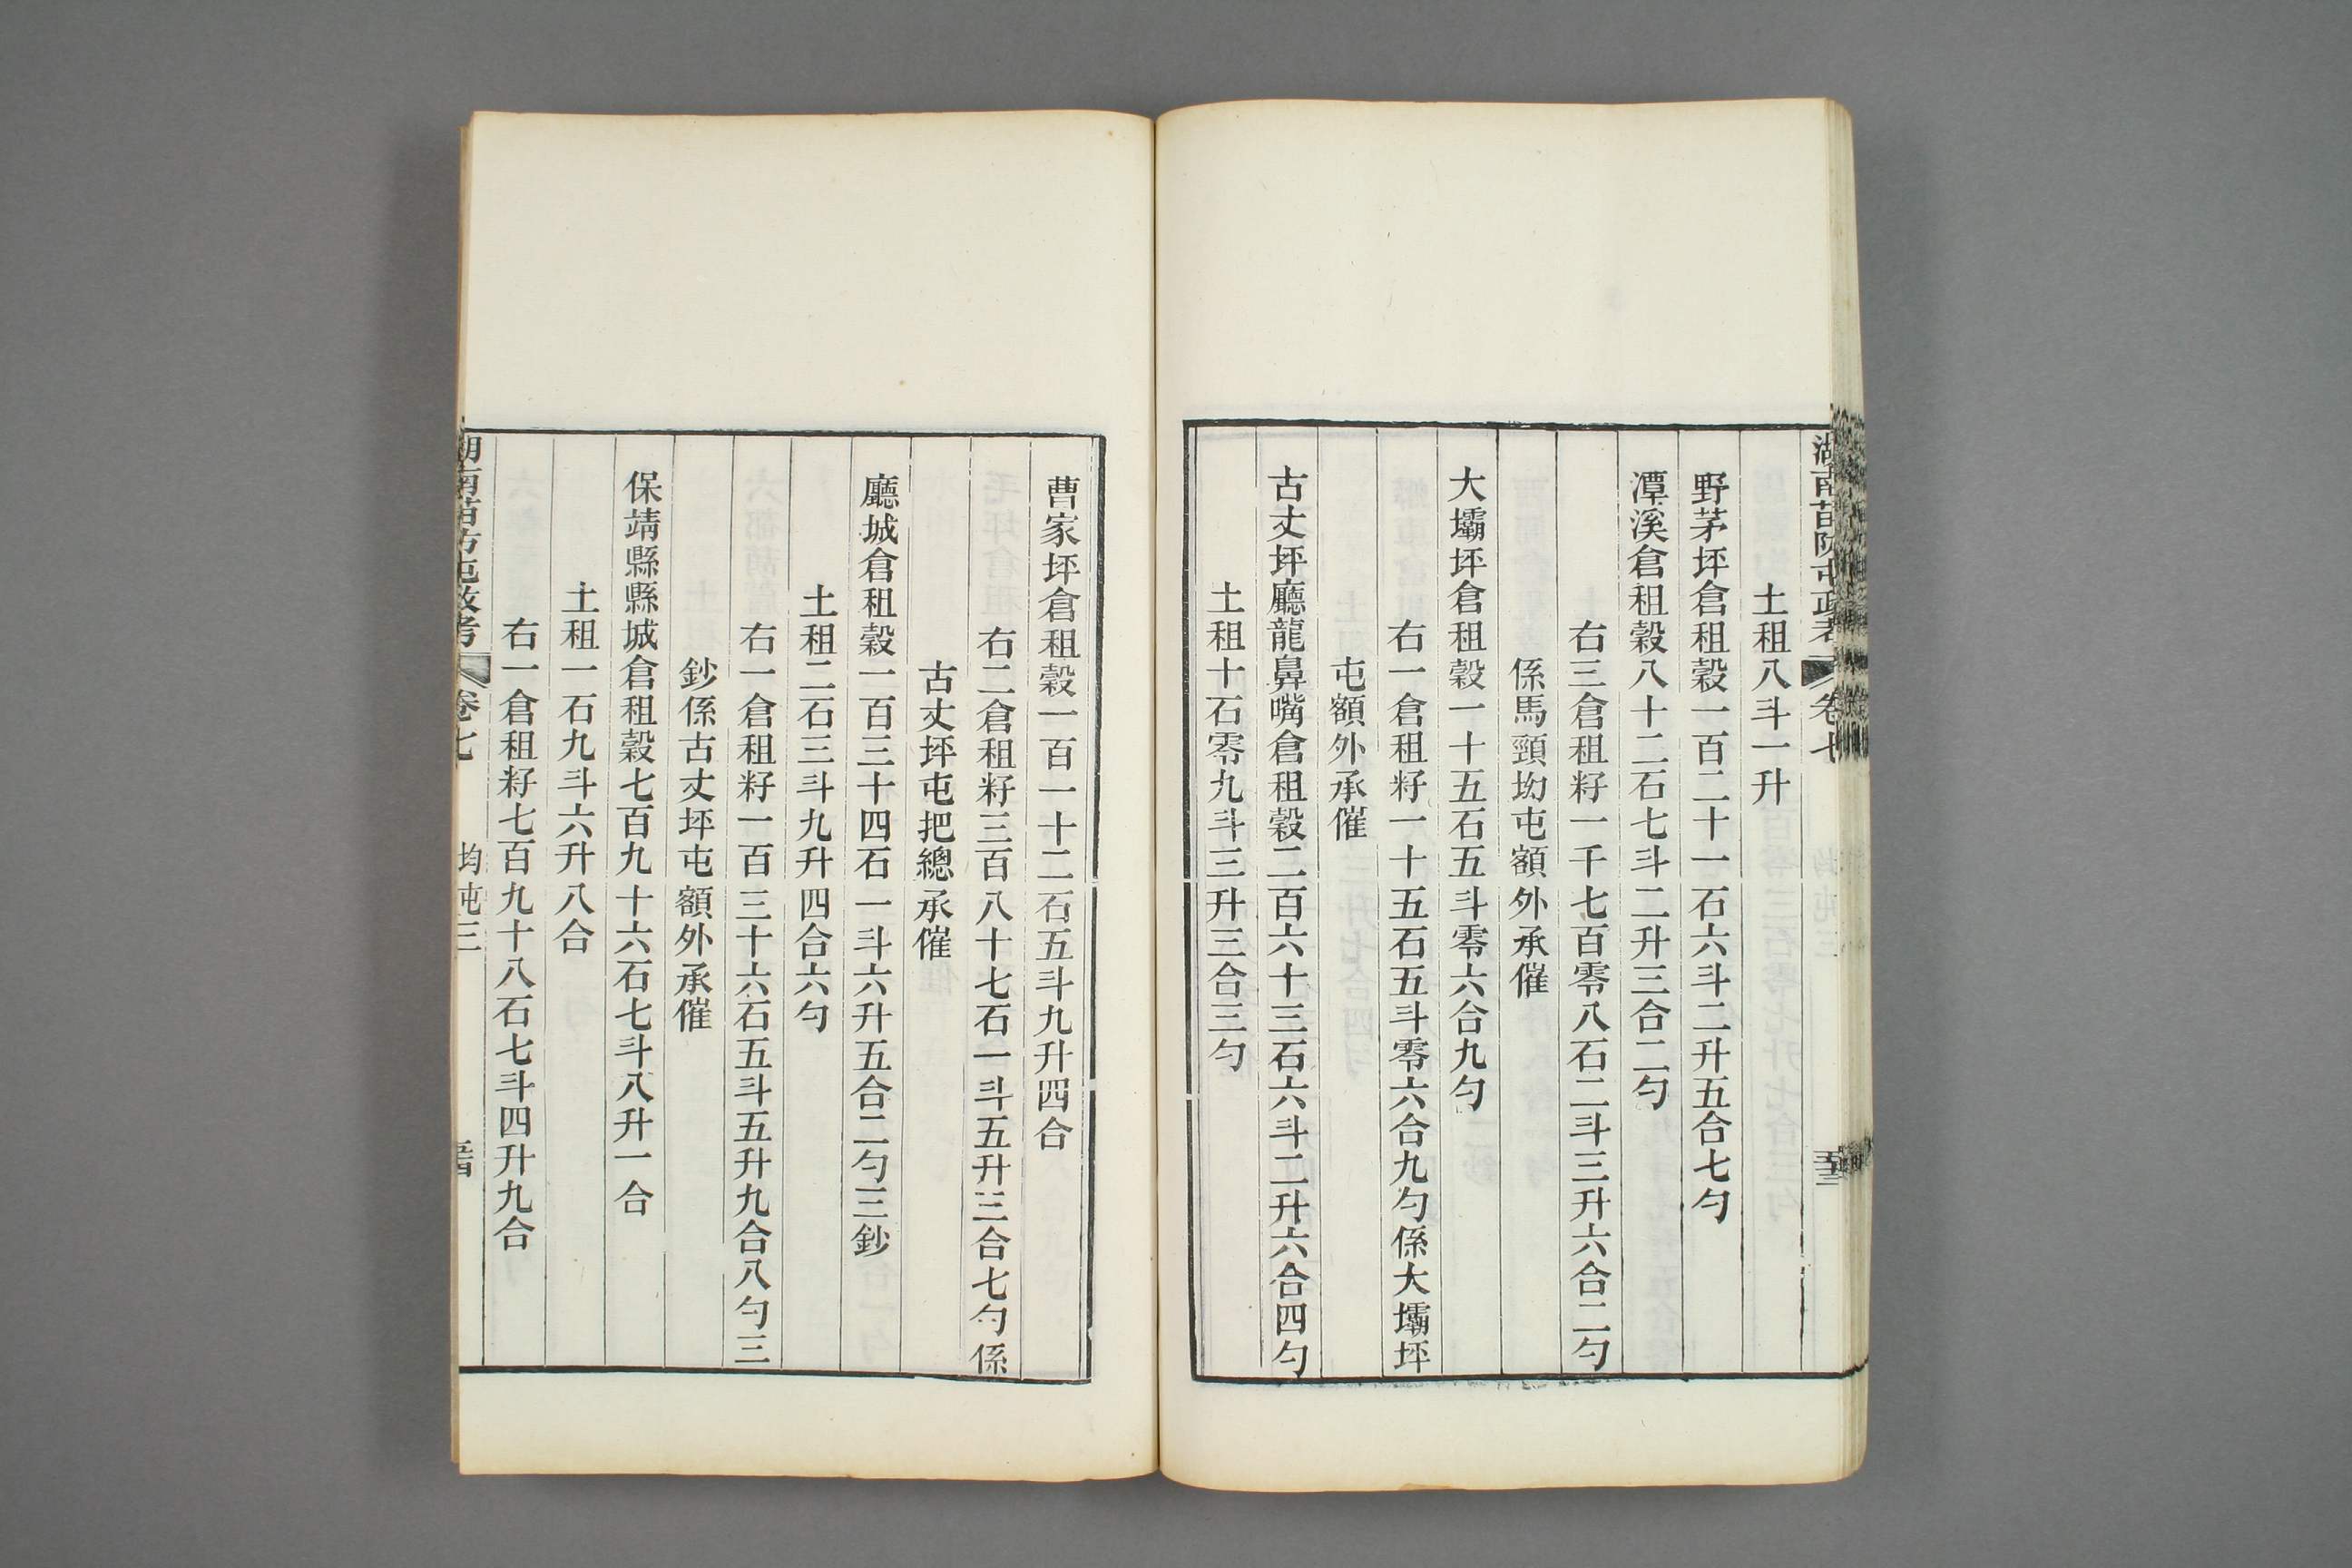 湖南苗防屯政考 卷七 五十三
土租八斗一升
野茅坪倉租穀一百二十一石六斗二升五合七勺
潭溪倉租穀八十二石七斗二升三合二勺
右三倉租籽一千七百零八石二斗三升六合二勺
係馬頸坳屯額外承催
大壩坪倉租穀一十五石五斗零六合九勺
右一倉租籽一十五石五斗零六合九勺係大壩坪
屯額外承催
古丈坪廳龍鼻嘴倉租穀二百六十三石六斗二升六合四勺
土租十石零九斗三升三合三勺
曹家坪倉租穀一百一十二石五斗九升四合
右二倉租籽三百八十七石一斗五升三合七勺係
古丈坪屯把總承催
廳城倉租穀一百三十四石一斗六升五合二勺三鈔
土租二石三斗九升四合六勺
右一倉租籽一百三十六石五斗五升九合八勺三
鈔係古丈坪屯額外承催
保靖縣縣城倉租穀七百九十六石七斗八升一合
土租一石九斗六升八合
右一倉租籽七百九十八石七斗四升九合
湖南苗防屯政考 卷七 均屯三